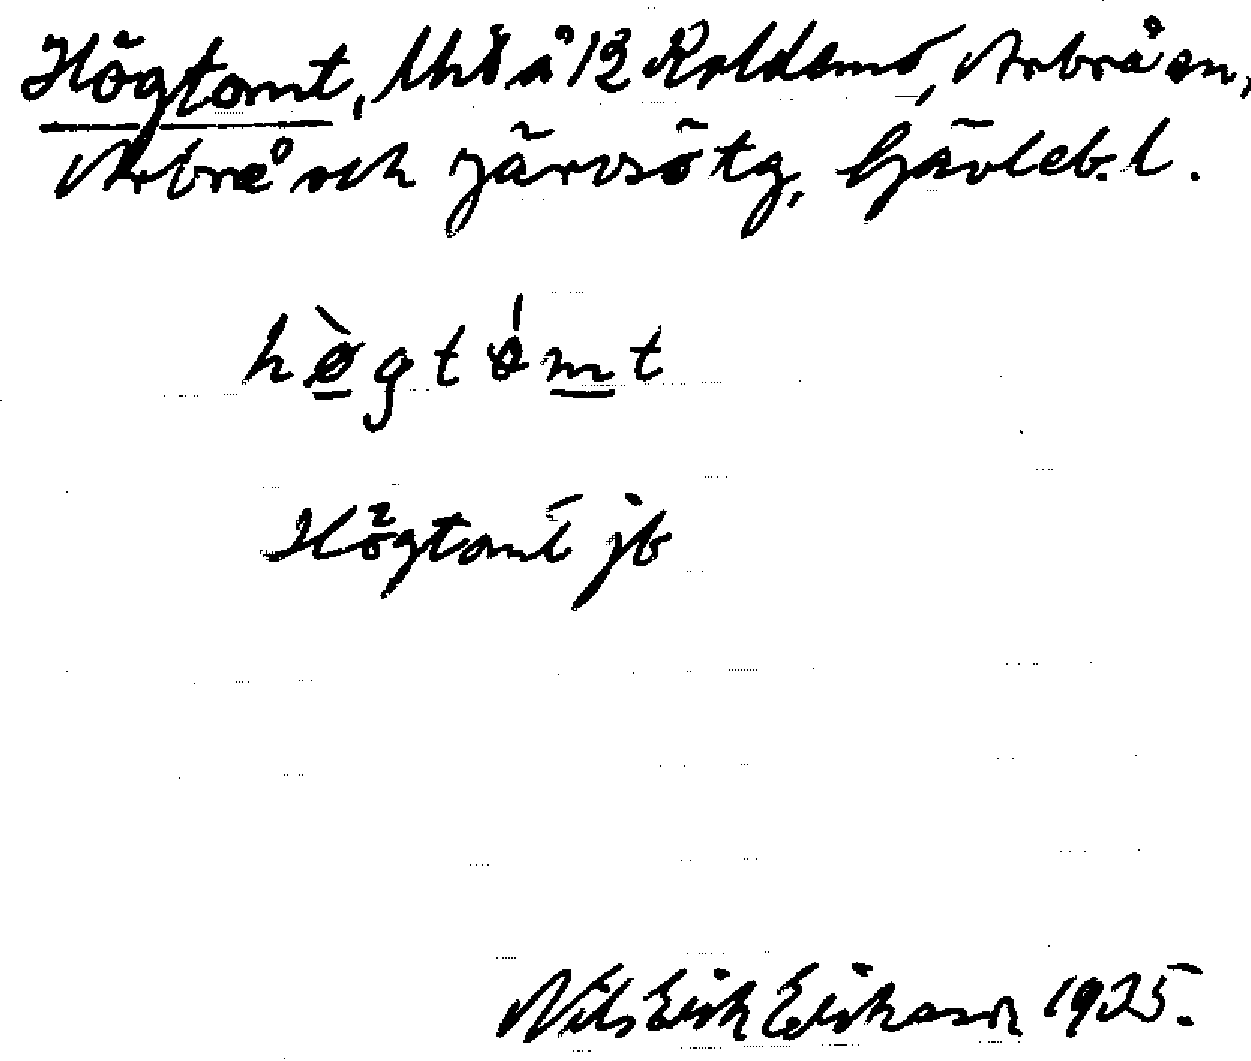 Högtomt, lht å 12 Koldemo, Arbrå sn,
Arbrå och Järvsö tg, Gävleb. l.
hø̀gtómt
Högtomt jb
Nils Erik Eriksson 1925.